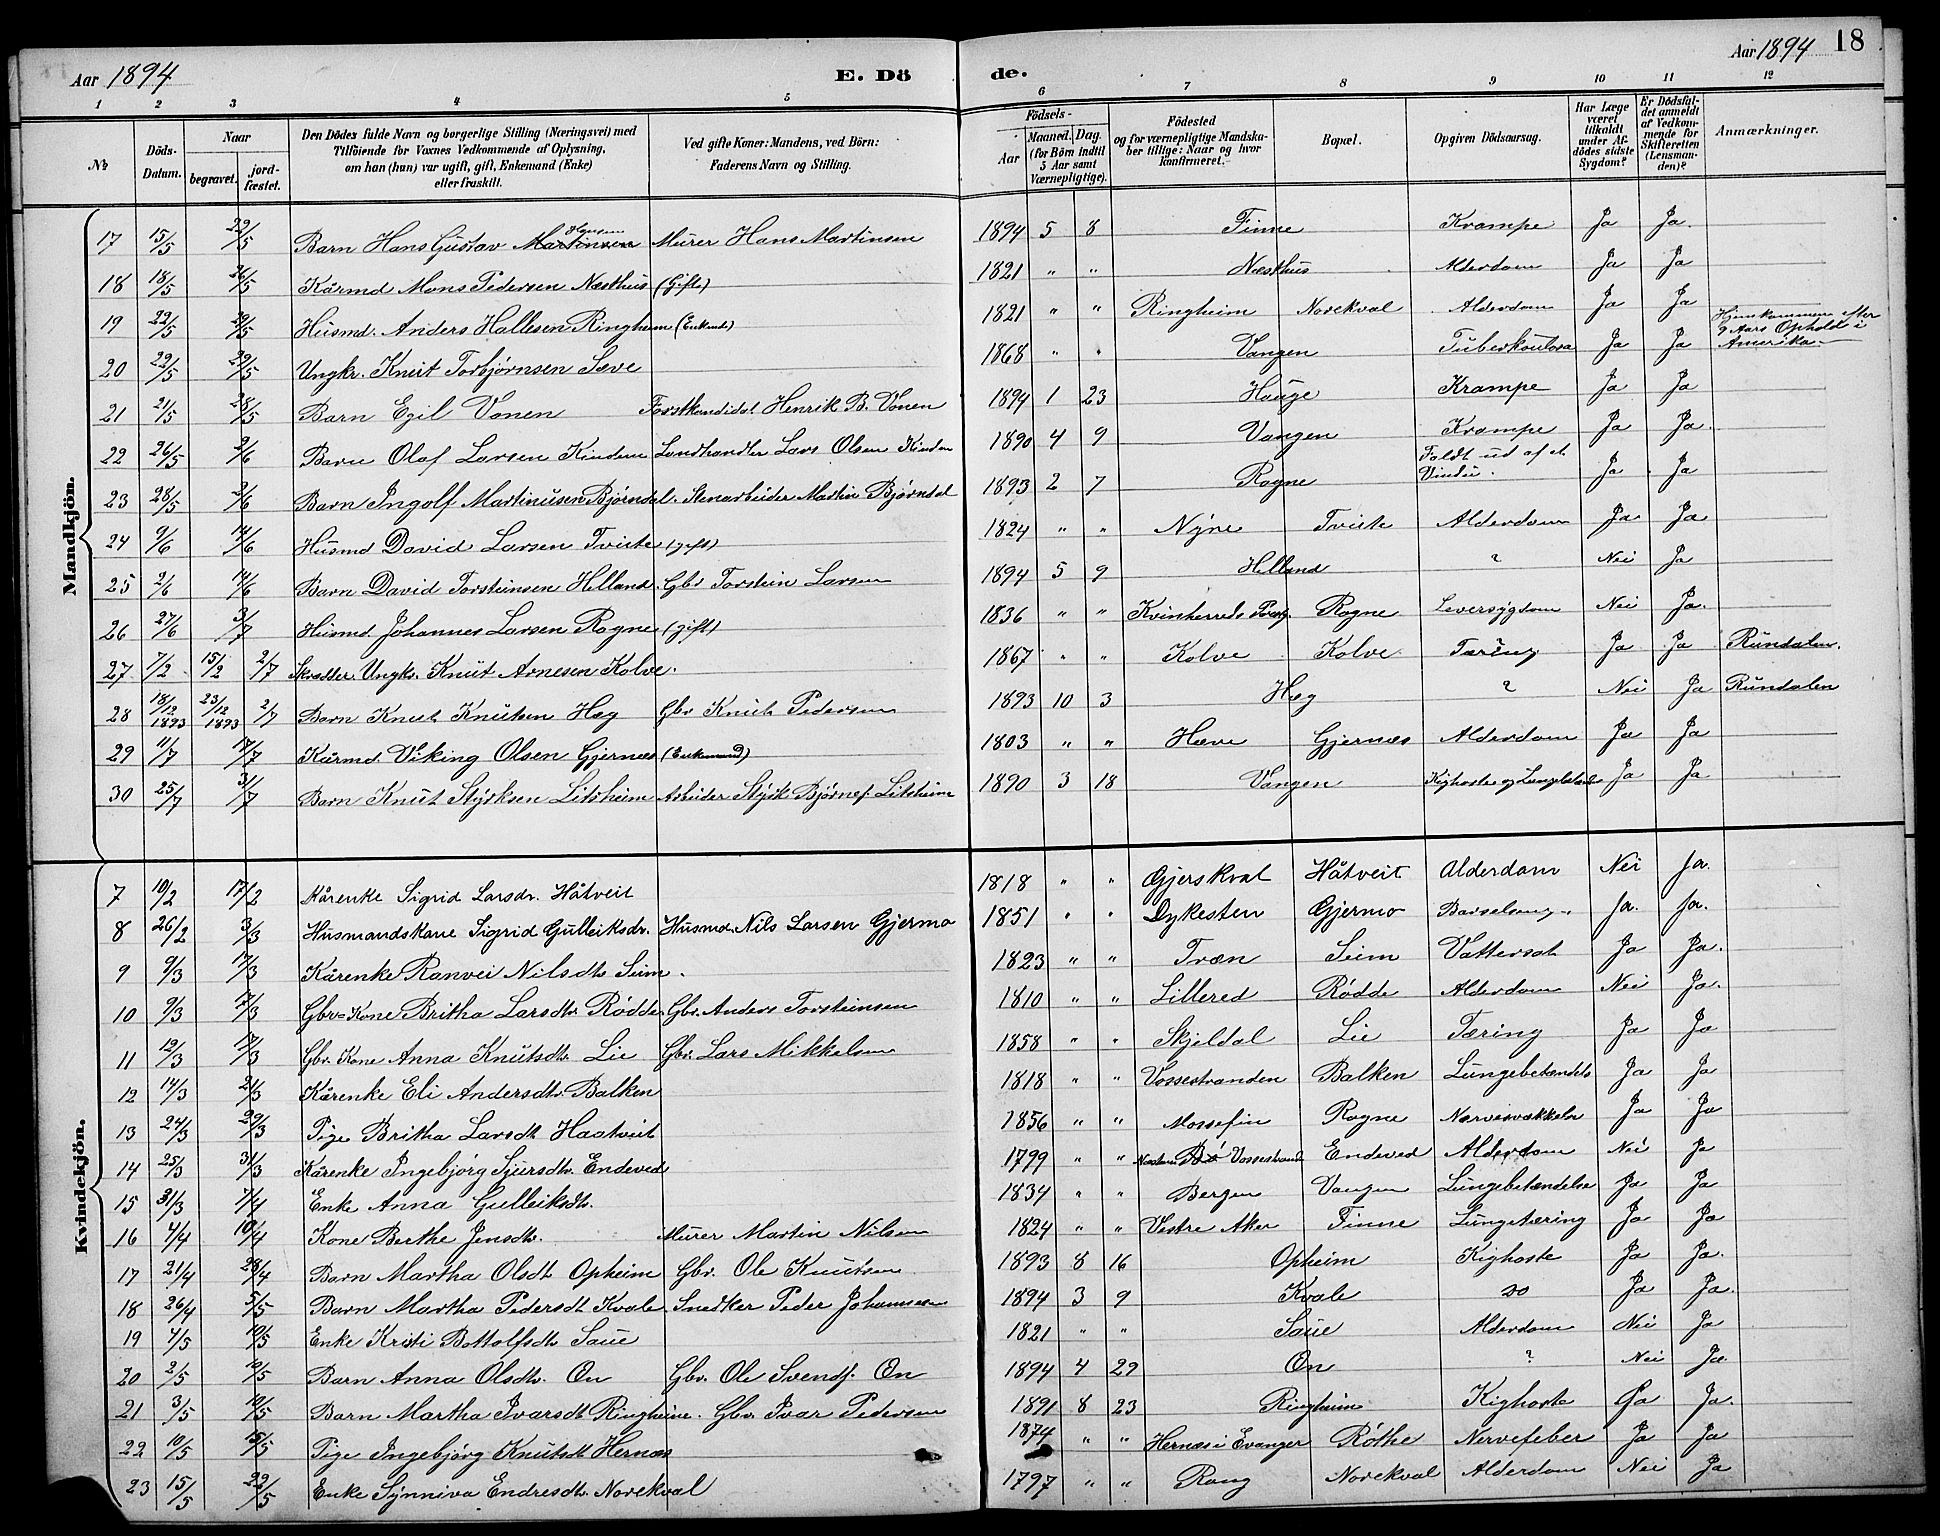 Aar 1894 E. Dö de. Aar 1894 18
1 2 3 4 5 6 7 8 9 10 11 12
№
Döds-Datum.
Naar
begravet.
jord-fæstet.
Den Dödes fulde Navn og borgerlige Stilling (Næringsvei) med
Tilföiende for Voxnes Vedkommende af Oplysning,
om han (hun) var ugift, gift, Enkemand (Enke)
eller fraskilt.
Ved gifte Koner: Mandens, ved Börn:
Faderens Navn og Stilling.
Födsels-
Aar
Maaned. Dag.
(for Börn indtil
5 Aar samt
Værnepligtige).
Födested
og for værnepligtige Mandska-
ber tillige: Naar og hvor
konfirmeret.
Bopæl.
Opgiven Dödsaarsag.
Har Læge
været
tilkaldt
under Af-
dödes sidste
Sygdom?
Er Dödsfal-
det anmeldt
af Vedkom-
mende for
Skifteretten
(Lensman-
den)?
Anmærkninger.
Mandkjön.
17 15/5 22/5 Barn Hans Gustav Martinsen Hansen Murer Hans Martinsen 1894 5 8 Finne Krampe Ja Ja
18 18/5 26/5 Kårmd Mons Pedersen Næsthus (Gift) 1821 " " Næsthus Alderdom Ja Ja
19 22/5 29/5 Husmd. Anders Hallesen Ringheim (Enkemd) 1821 " " Ringheim Norekval Alderdom Ja Ja
20 22/5 29/5 Ungkr. Knut Torbjørnsen Sæve 1868 " " Vangen Tuberkoulosa Ja Ja Hjemkommen efter 9 Aars Ophold i Amerika
21 21/5 28/5 Barn Egil Vonen Forstkandidat Henrik B. Vonen 1894 1 23 Hauge Krampe Ja Ja
22 26/5 2/6 Barn Olaf Larsen Kindem Landhandler Lars Olsen Kindem 1890 4 9 Vangen Krampe Ja Ja
23 28/5 2/6 Barn Ingolf Martinusen Bjørndal. Stenarbeider Martin Bjørndal 1893 2 7 Rogne Faldt ud af et Vindu. Ja Ja
24 9/6 14/6 Husmd David Larsen Tviste (gift) 1824 " " Nÿre Tviste Alderdom Ja Ja
25 2/6 14/6 Barn David Torsteinsen Helland. Gbr Torstein Larsen 1894 5 9 Helland ? Nei Ja
26 27/6 3/7 Husmd. Johannes Larsen Rogne (gift) 1836 " " Kvinherreds Præstg. Rogne Leversÿgdom Nei Ja
27 7/2 15/2 2/7 Skrædder. Ungkr. Knut Arnesen Kolve. 1867 " " Kolve Kolve Tæring Ja Ja Rundalen.
28 18/12 1893 23/12 1893 2/7 Barn Knut Knutsen Hæg Gbr Knut Pedersen 1893 10 3 Hæg ? Nei Ja Rundalen
29 11/7 17/7 Kårmd. Viking Olsen Gjernæs (Enkemand) 1803 " " Hæve Gjernæs Alderdom Ja Ja
30 25/7 31/7 Barn Knut Stÿrksen Litsheim Arbeider Stÿrk Bjørnes. Litsheim 1890 3 18 Vangen Kighoste og Lungebetænd. Ja Ja
Kvindekjön.
7 10/2 17/2 Kårenke Sigrid Larsdr. Håtveit 1818 " " Gjerskval Håtveit Alderdom Nei Ja.
8 26/2 3/3 Husmandskone Sigrid Gulleiksdr. Husmd. Nils Larsen Gjermo 1851 " " Dykesten Gjermo Barselseng. Ja. Ja.
9 9/3 17/3 Kårenke Ranvei Nilsdtr Seim. 1823 " " Træn Seim Vattersot Ja Ja.
10 9/3 17/3 Gbr-Kone Britha Larsdtr Rødde. Gbr. Anders Torsteinsen 1810 " " Lillered Rødde Alderdom Nei Ja.
11 12/3 17/3 Gbr. Kone Anna Knutsdtr. Lie Gbr. Lars Mikkelsen 1858 " " Skjeldal Lie Tæring Ja Ja
12 14/3 21/3 Kårenke Eli Andersdtr. Balken 1818 " " Vossestranden Balken Lungebetændels Ja Ja
13 24/3 29/3 Pige Britha Larsdt Haatveit 1856 " " Mossefin Rogne Nervesvækkelse Ja Ja
14 25/3 31/3 Kårenke Ingebjörg Sjursdtr. Endeved 1799 " " Bö Vossestrand Endeved Alderdom Nei Ja
15 31/3 7/4 Enke Anna Gulleiksdtr. 1834 " " Bergen Vangen Lungebetændelse Ja Ja
16 4/4 10/4 Kone Berthe Jensdtr. Murer Martin Nilsen 1824 " " Vestre Aker Finne Lungetæring Ja Ja
17 21/4 28/4 Barn Martha Olsdt Opheim Gbr. Ole Knutsen 1893 8 16 Opheim Kighoste Ja Ja.
18 26/4 5/5 Barn Martha Pedersdt Kvale. Snedker Peder Johannesen 1894 3 9 Kvale do Ja Ja.
19 4/5 10/5 Enke Kristi Bottolfsdtr Saue 1821 " " Saue Alderdom Nei Ja
20 2/5 10/5 Barn Anna Olsdtr. Øn Gbr. Ole Svends. Øn 1894 4 29 Øn ? Nei Ja
21 3/5 10/5 Barn Martha Ivarsdt Ringheim. Gbr. Ivar Pedersen 1891 8 23 Ringheim Kighoste Ja Ja.
22 10/5 15/5 Pige Ingebjörg Knutsdt Hernæs 1874 " " Hernæs i Evanger Röthe Nervefeber Ja Ja
23 15/5 22/5 Enke Sÿnniva Endresdtr. Norekval 1797 " " Rong Norekval Alderdom Nei Ja